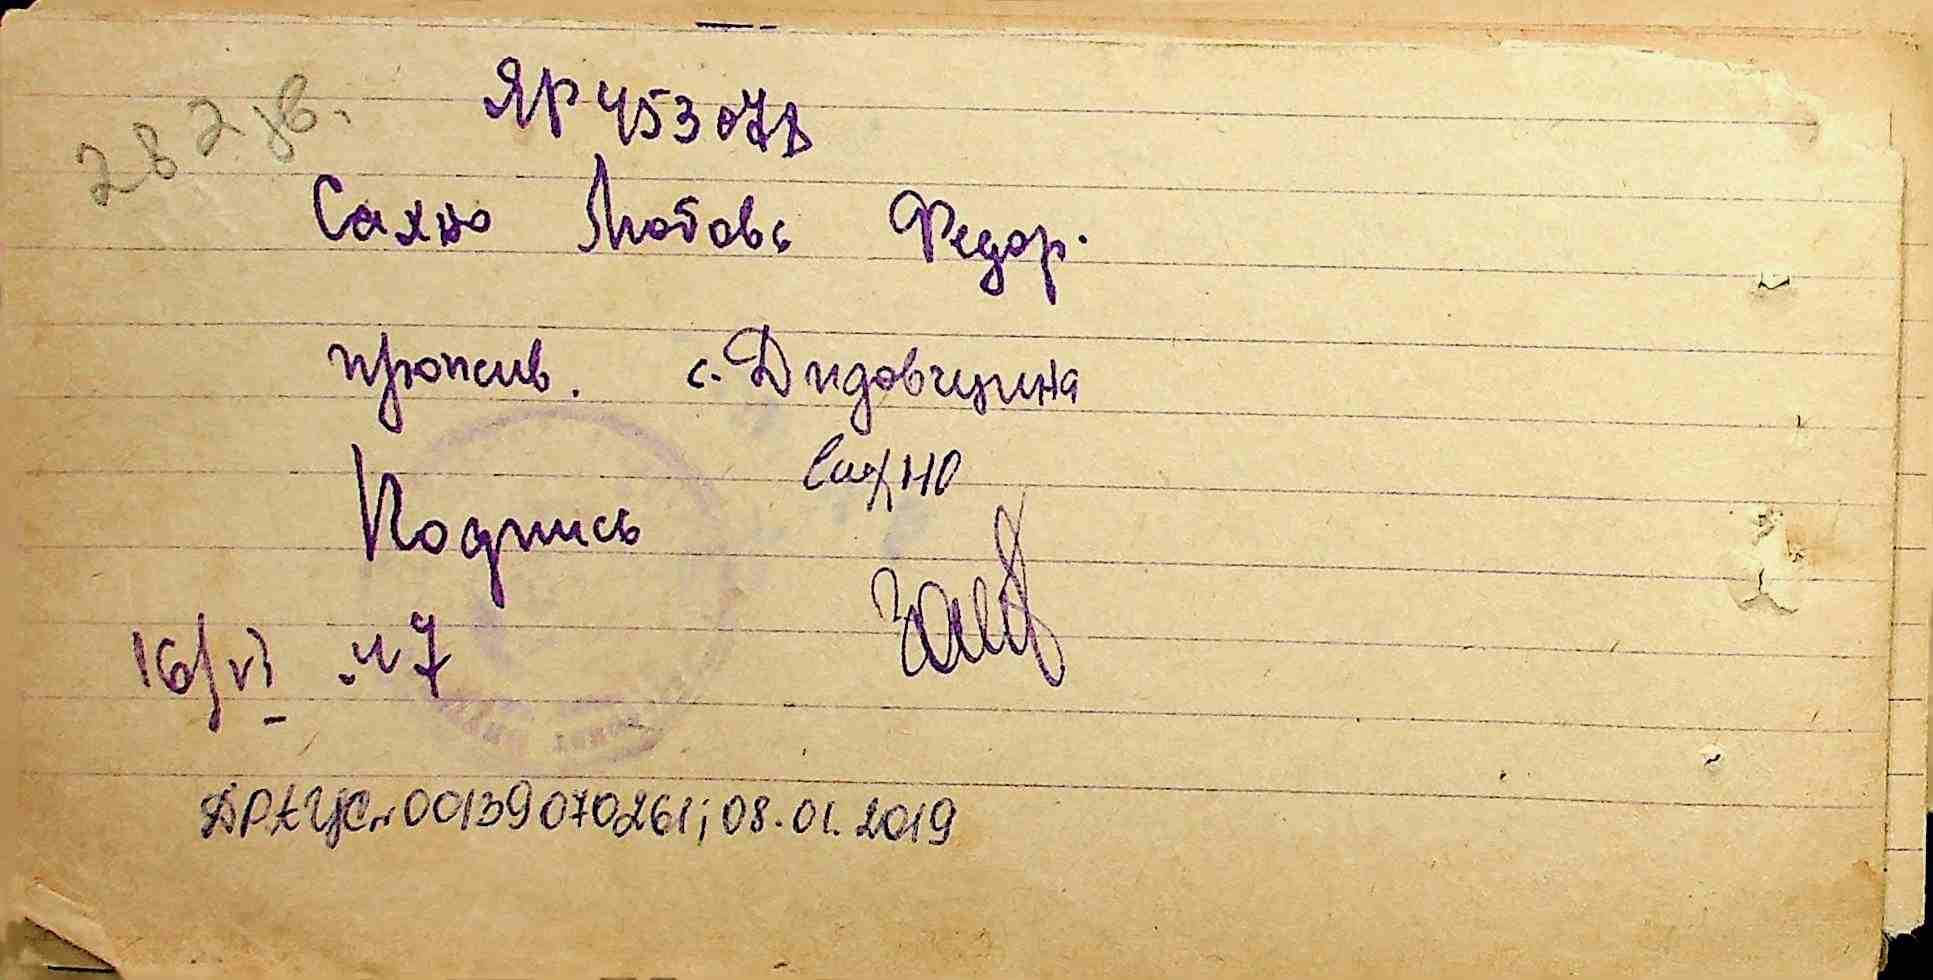 282 зв.
ЯР 453078
Сахно Любовь Федор.
прожив. с. Дидовщина
Сахно
Подпись
16/VI 47
ДРАЦС, 00139070261; 08.01.2019